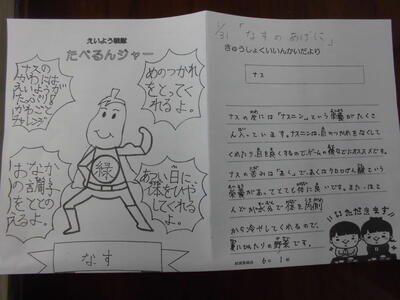 えいよう戦隊
たべるんジャー
ナスの
やわには
えいようが
たっぷり!
かわごと
チャレンジ
めのつかれ
をとってく
れるよ。
おなか
の調子
をととの
えるよ。
あつい日に、
体をひやし
てくれる
よ。
緑
なす
1/31 「なすのあげに」
きゅうしょくいいんかいだより
ナス
ナスの皮には「ナスニン」という栄養がたくさ
ん入っています。ナスニンは、目のつかれをなくして
くれたり、目を良くするので、ゲームの後などにオススメです。
ナスの苦みは「あく」で、あくはクロロゲン酸という
栄養があってとても体に良いです。また、ほと
んどが水分で体を内側
から冷やしてくれるので、
夏にぴったりの野菜です。
いただきます
給食委員会 6の1